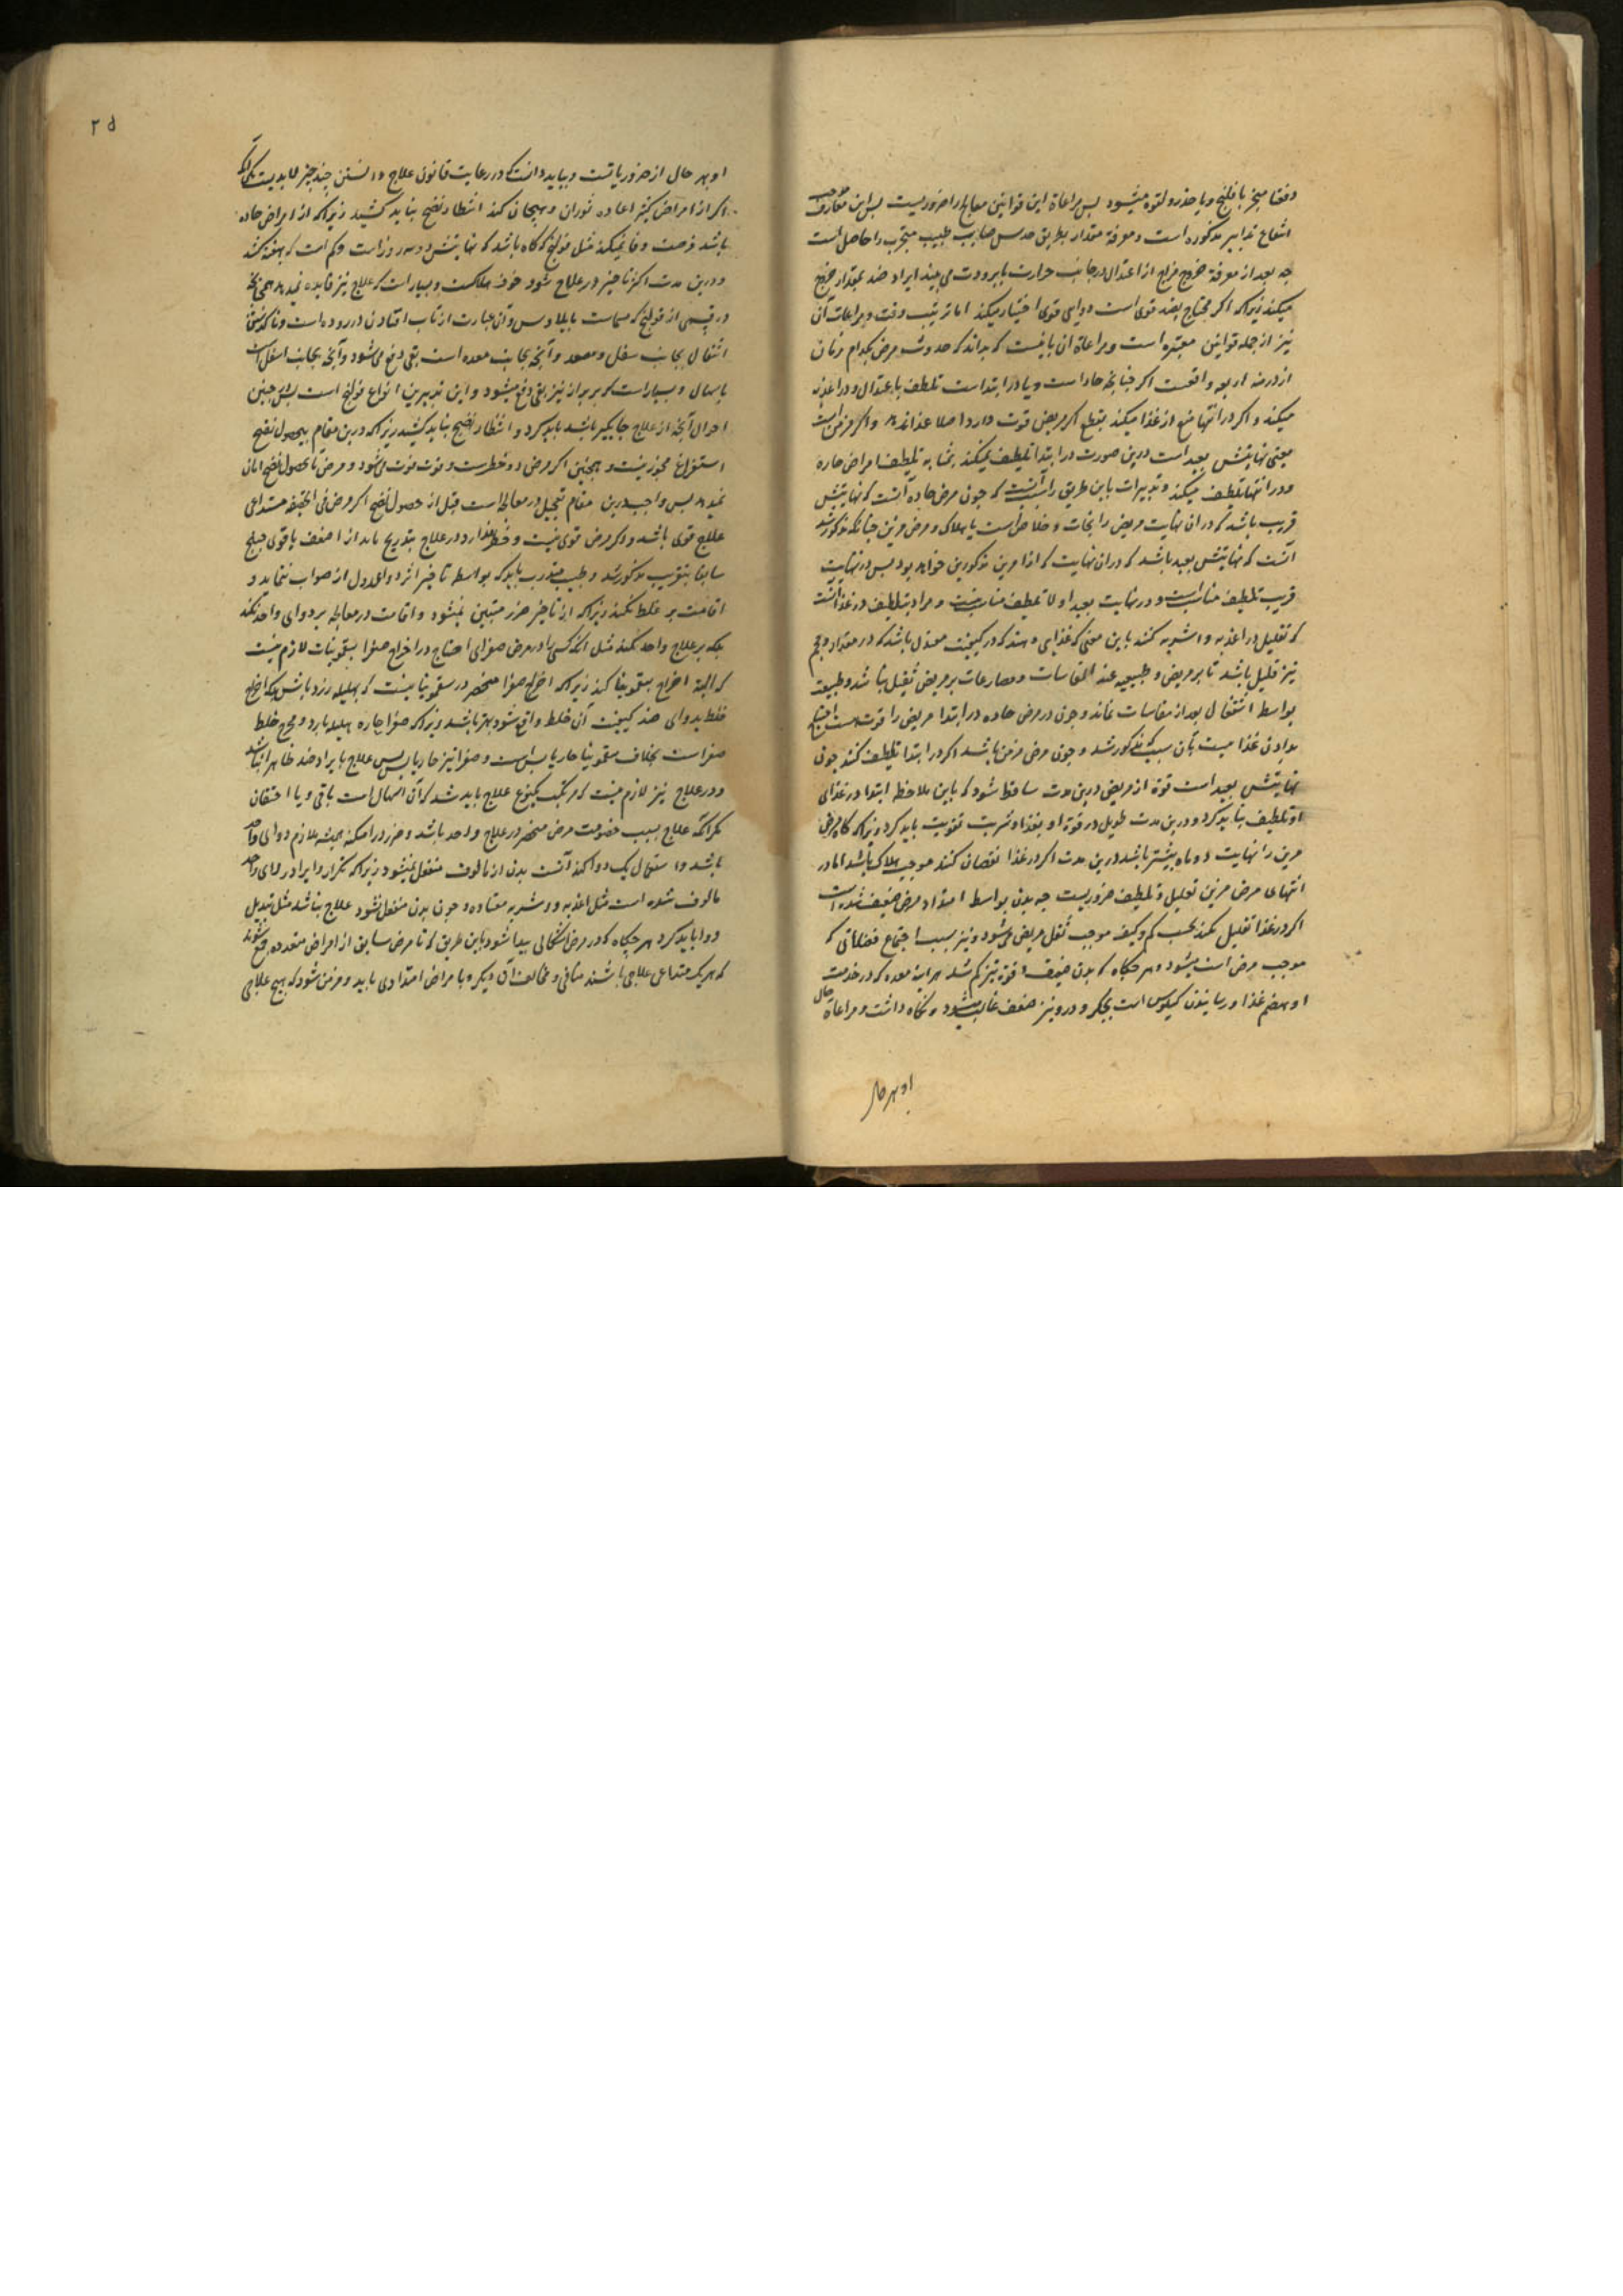 دفعتا منجر با فلج و یا خدر و لقوه میشود پس مراعاة این قوانین معالج را ضروریست پس این معارف موجب
انتفاع تدابیر مذکوره است و معرفة مقدار بطریق حدس صایب طبیب مجرب را حاصل است
چه بعد از معرفة خروج مزاج از اعتدال در جانب حرارت یا برودت می بیند ایراد ضد بمقدار خروج
میکند زیراکه اکر محتاج بضد قوی است دوای قوی اختیار میکند اما ترتیب وقت و مراعات آن
نیز از جمله قوانین معتبره است و مراعاة ان بانیست که بداند که حدوث مرض بکدام زمان
از ازمنه اربعه واقعست اکر چنانچه حاد است و یا در ابتداست تلطیف باعتدال و در اغذیه
میکند و اکر در انتها منع از غذا میکند بقطع اکر مریض قوت دارد اصلا غذا ندهد و اکر مزمن است
یعنی نهایتش بعید است درین صورت در ابتدا تلطیف نمیکند بمثابه تلطیف امراض حاره
و در انتها تلطیف میکند و تدبیرات باین طریق را سبب آنست که چون مرض حاده آنست که نهایتش
قریب باشد که در ان نهایت مریض را نجات و خلاص است یا هلاک و مرض مزمن چنانکه مذکور شد
آنست که نهایتش بعید باشد که در ان نهایت که از امرین مذکورین خواهد بود پس در نهایت
قریب تلطیف مناسب است و در نهایت بعید اولا تلطیف مناسب نیست و مراد بتلطیف در غذا آنست
که تقلیل در اغذیه و اشربه کنند باین معنی که غذایی دهند که در کیفیت معتدل باشد که در مقدار و حجم
نیز قلیل باشد تا بر مریض و طبیعیه عند المقاسات و مصارعات بر مریض ثقیل نباشد و طبیعت
بواسطه اشتغال بعد از مقاسات نماند و چون در مرض حاده در ابتدا مریض را قوت هست احتیاج
بدادن غذا نیست بآن سبب که مذکور شد و چون مرض مزمن باشد اکر در ابتدا تلطیف کنند چون
نهایتش بعید است قوة از مریض درین مدت ساقط شود که باین ملاحظه ابتدا در غذای
او تلطیف نباید کرد و درین مدت طویل در قوة او بغذا و شربت تقویت باید کرد زیراکه کاه مرض
مزمن را نهایت دو ماه بیشتر باشد درین مدت اکر در غذا نقصان کنند موجب هلاک باشد اما در
انتهای مرض مزمن تقلیل و تلطیف ضروریست چه بدن بواسطه امتداد مرض ضعیف شده است
اکر در غذا تقلیل نکند بحسب کم و کیف موجب ثقل مریض می شود و نیز بسبب اجتماع فضلاتی که
موجب مرض است میشود و هر چکاه که بدن ضعیف و قوة نیز کم شد هر آینه معده که در خدمت
او بهضم غذا و رسانیدن کیلوس است بجکر و درو نیز ضعف غالب میشود و نکاه داشت و مراعاة حال
او بهر حال
۲۵
او بهر حال از ضروریاتست و بباید دانست که در رعایت قانون علاج دانستن چند چیز لابدیست یکی آنکه
اکر از امراض کثیر اعاده ثوران و هیجان کند انتظار نضج نباید کشید زیراکه از امراض حاده
باشد فرصت وفا نمیکند مثل قولنج که کاه باشد که نهایتش دو سه روز است و کم است که بهفته کشد
و درین مدت اکر تاخیر در علاج شود خوف هلاکست و بسیار است که علاج نیز فایده نمیدهد همچنانچه
در قسمی از قولنج که مسماست بایلاوس و آن عبارت از تاب افتادن در روده است
اثقال بجانب سفل و معده و آنچه بجانب معده است بقی دفع می شود و آنچه بجانب اسفل است
باسهال و بسیار است که بربراز نیز بقی دفع میشود و این بدترین انواع قولنج است پس در چنین
احوال آنچه از علاج جایکیر باشد باید کرد و انتظار نضج نباید کشید زیراکه درین مقام بی حصول نضج
استفراغ مجوز نیست و همچنین اکر مرض ذو خطرست و فوت قوت می شود و مرض تا حصول نضج امان
نمیدهد پس واجب درین مقام تعجیل در معالجه است قبل از حصول نضج اکر مرض فی الحقیقه مستدعی
علاج قوی باشد و اکر مرض قوی نیست و خطر ندارد در علاج بتدریج باید از اضعف باقوی چنانچه
سابقا بتقریب مذکور شد و طبیب مدرب باید که بواسطه تاخیر اثر دوا عدول از صواب ننماید و
اقامت بر غلط نکند زیراکه از تاخیر ضرر متبین نمیشود و اقامت در معالجه بر دوای واحد نکند
بلکه بر علاج واحد نکند مثل آنکه کسی را در مرض صفرای احتیاج در اخراج صفرا بسقمونیات لازم نیست
که البته اخراج بسقمونیا کند زیراکه اخراج صفرا منحصر در سقمونیا نیست که بهلیله زرد باشد بلکه اخراج
خلط بدوای ضد کیفیت آن خلط واقع شود بهتر باشد زیراکه صفرا حاره هلیله بارد و مخرج خلط
صفراست بخلاف سقمونیا حار یابس است و صفرا نیز حار یابس پس علاج بایراد ضد ظاهرا نباشد
و در علاج نیز لازم نیست که مرتکب یکنوع علاج باید شد که آن اسهال است یا قی و یا احتقان
مکر آنکه علاج بسبب خصوصیت مرض منحصر در علاج واحد باشد و ضرر در امکنه همیشه ملازم دوای واحد
باشد و استعمال یک دوا کند آنست بدن از مالوف منفعل نمیشود زیراکه تکرار و ایراد دوای واحد
مالوف شده است مثل اغذیه و اشربه معتاده و چون بدن منفعل نشود علاج نباشد مثل تبدیل
دوا باید کرد هر چکاه که در مرض اشکالی پیدا شود باین طریق که تا مرض سابق از امراض متعدده جمع شوند
که هر یک مستدعی علاجی باشند منافی و مخالف آن دیکر و یا مراض امتدادی یابد و مزمن شود که بهیچ علاجی